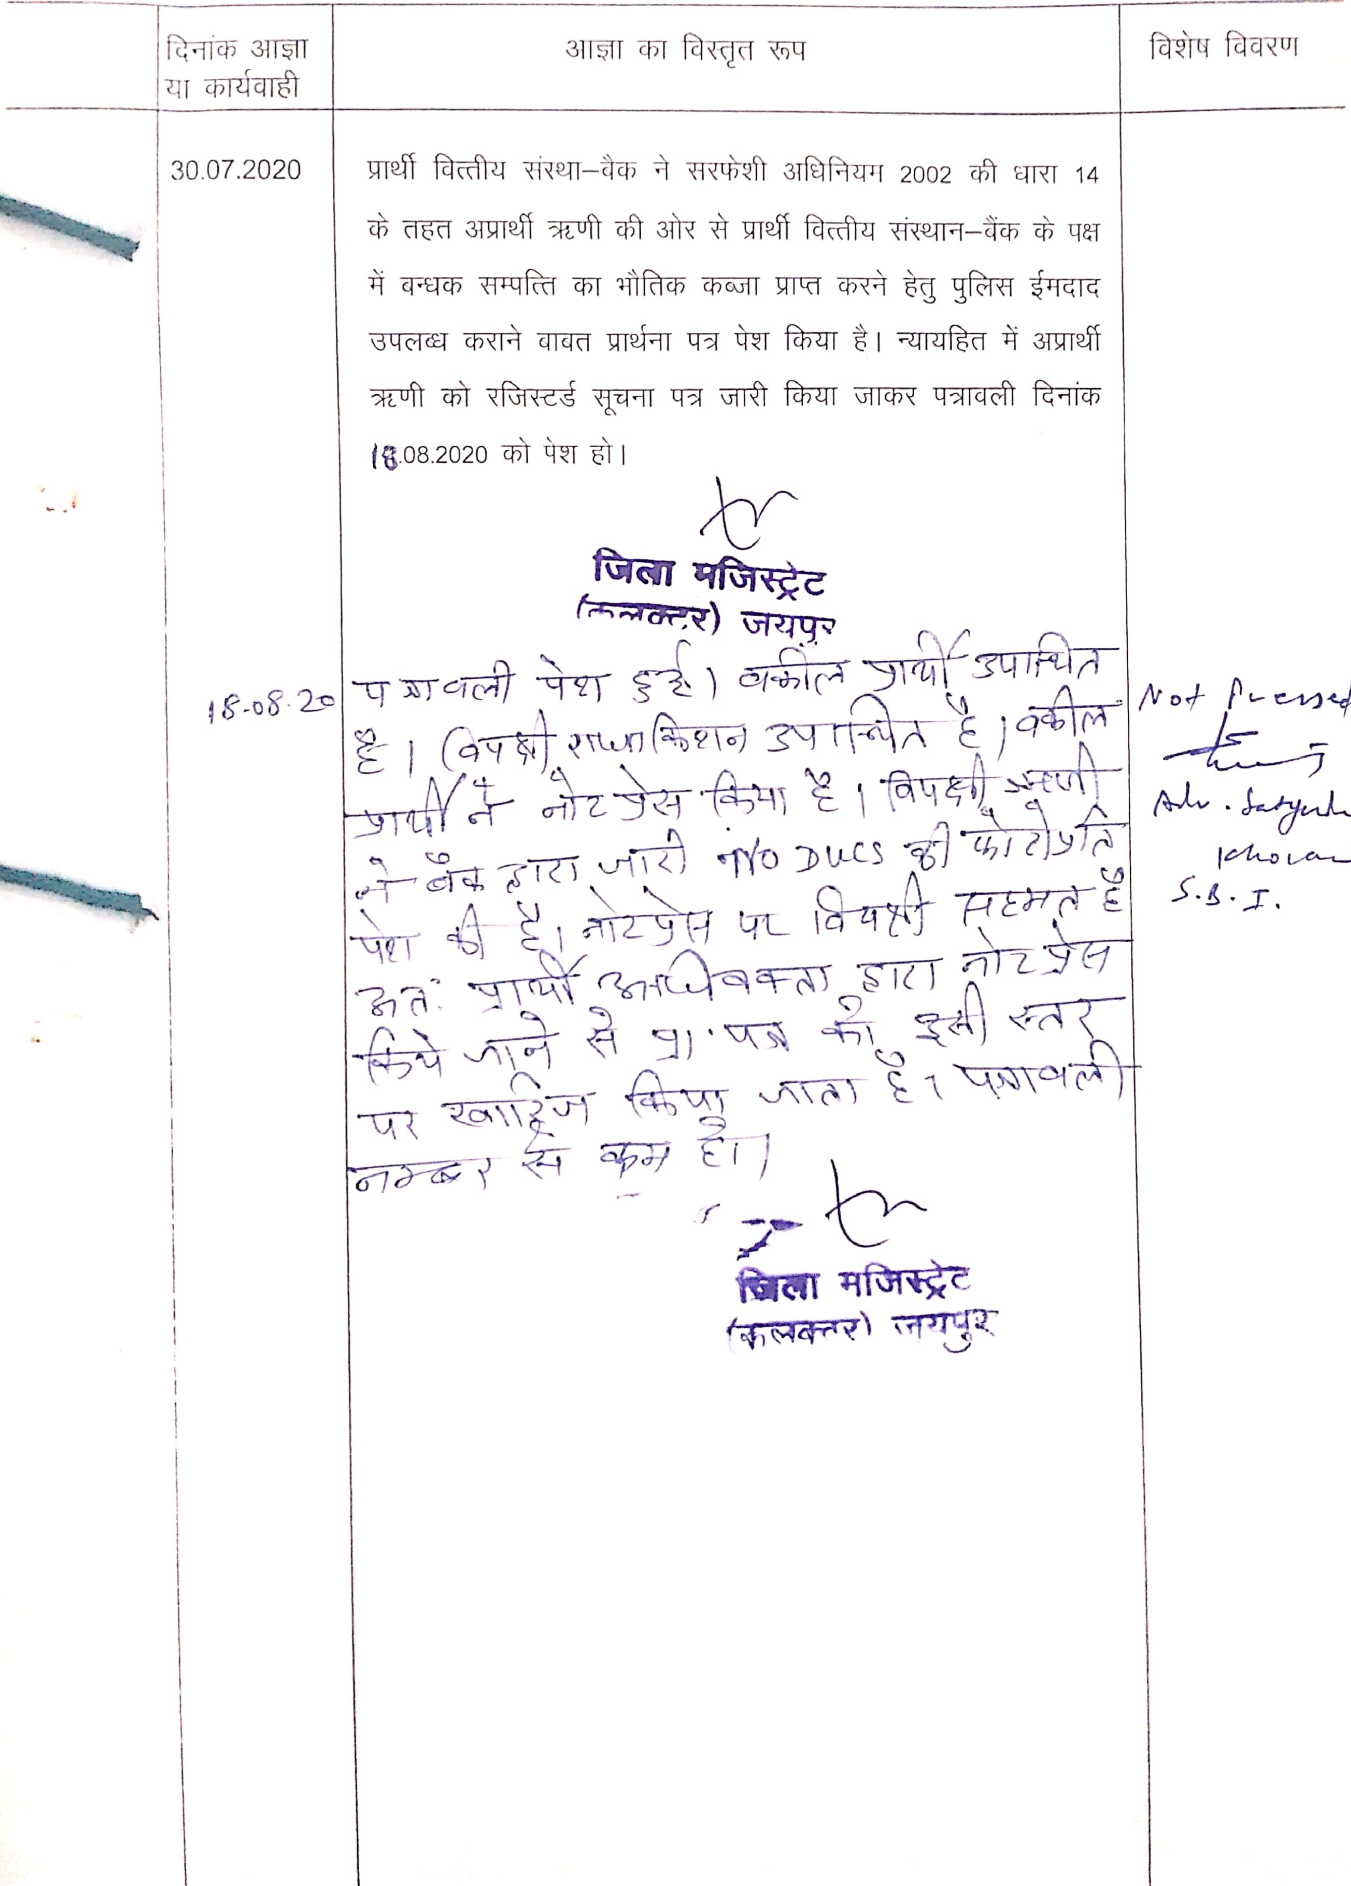 दिनांक आज्ञा
या कार्यवाही
आज्ञा का विस्तृत रूप
विशेष विवरण
30.07.2020
प्रार्थी वित्तीय संस्था–बैक ने सरफेशी अधिनियम 2002 की धारा 14
के तहत अप्रार्थी ऋणी की ओर से प्रार्थी वित्तीय संस्थान–बैंक के पक्ष
में बन्धक सम्पत्ति का भौतिक कब्जा प्राप्त करने हेतु पुलिस ईमदाद
उपलब्ध कराने बाबत प्रार्थना पत्र पेश किया है। न्यायहित में अप्रार्थी
ऋणी को रजिस्टर्ड सूचना पत्र जारी किया जाकर पत्रावली दिनांक
18.08.2020 को पेश हो।
जिला मजिस्ट्रेट
(कलक्टर) जयपुर
18-08-20
पत्रावली पेश हुई। वकील प्रार्थी उपस्थित
है। विपक्षी राधाकिशन उपस्थित है। वकील
प्रार्थी ने नोट प्रेस किया है। विपक्षी ऋणी
ने बैंक द्वारा जारी NO DUES की फोटोप्रति
पेश की है। नोटप्रेस पर विपक्षी सहमत है
अतः प्रार्थी अधिवक्ता द्वारा नोट प्रेस
किये जाने से प्रा. पत्र को इसी स्तर
पर खारिज किया जाता है। पत्रावली
नम्बर से कम हो।
Not Pressed
Adv.
S.B.I.
जिला मजिस्ट्रेट
(कलक्टर) जयपुर